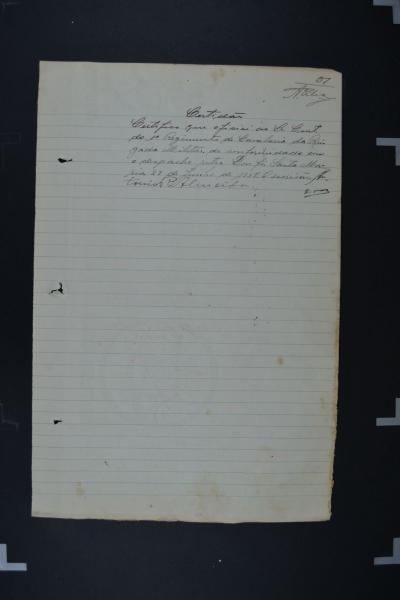 07
Certidão
Certifico que oficiei ao Sr. Cmt.
do 1º Regimento de Cavalaria da Bri
gada Militar, de conformidade com
o despacho retro. Dou fé. Santa Ma
ria 27 de Junho de O escrivão An
tonio Almeida